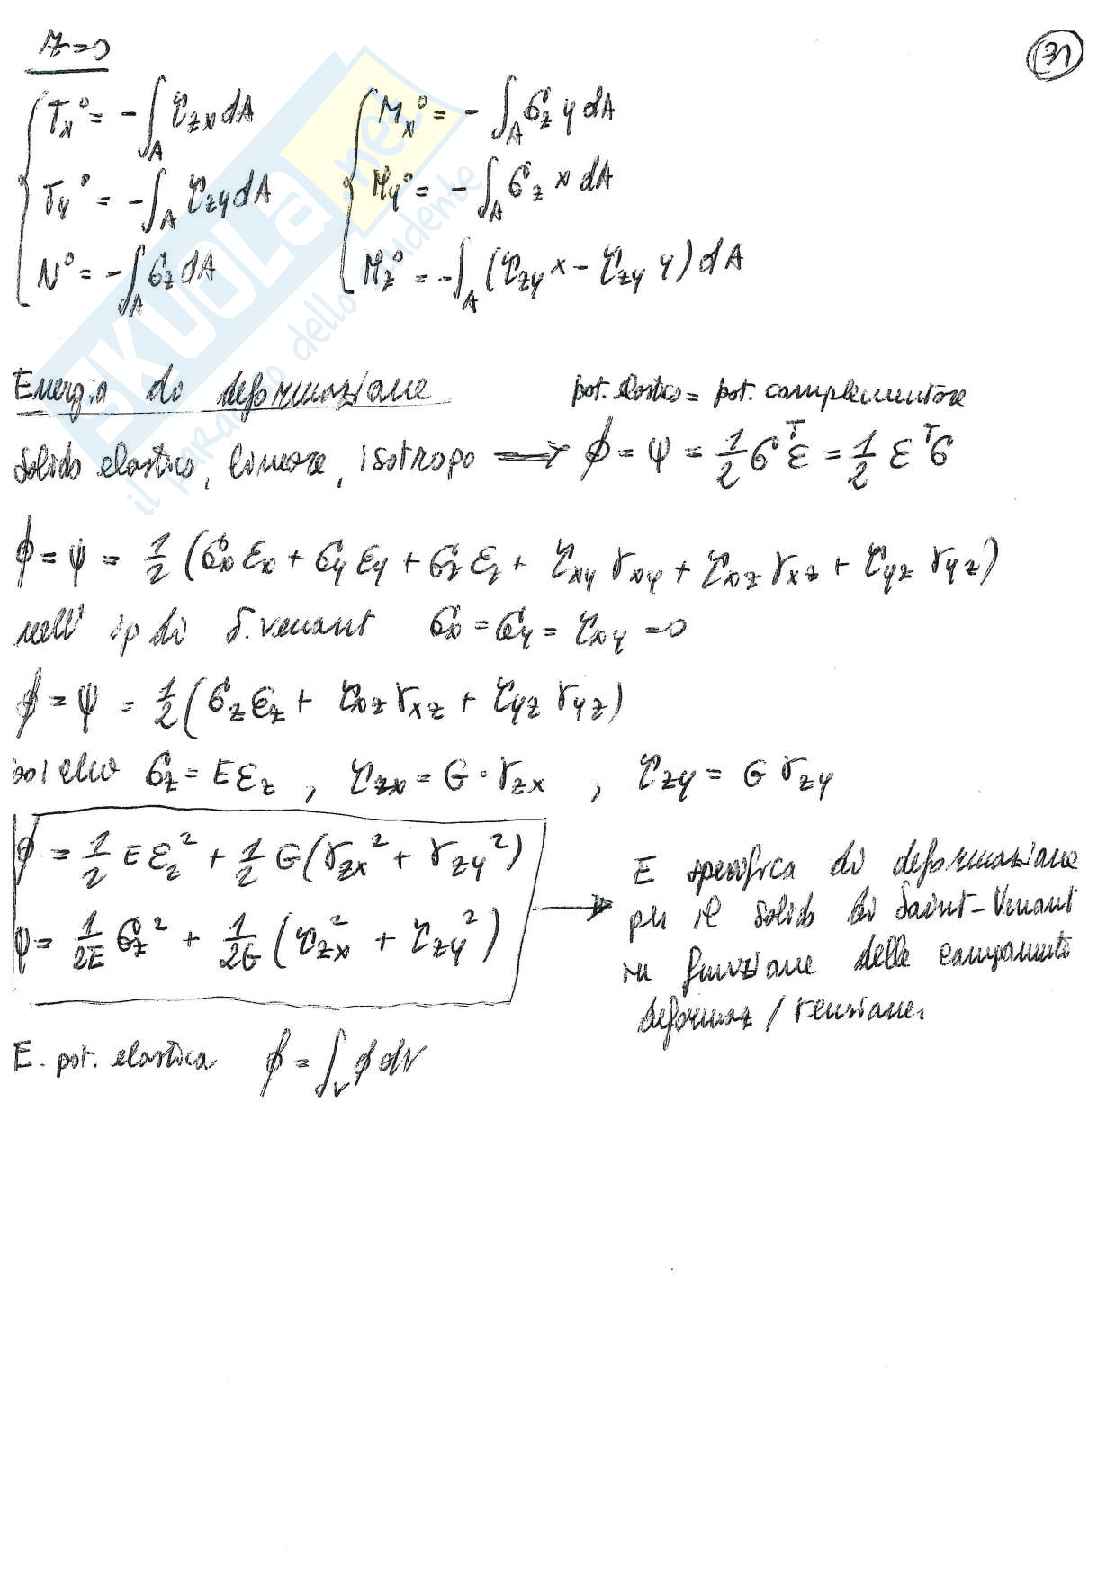 z=0
31
Tx° = - ∫A τzx dA
Mx° = - ∫A σz y dA
Ty° = - ∫A τzy dA
My° = - ∫A σz x dA
N° = - ∫A σz dA
Mz° = - ∫A (τzy x - τzy y) dA
SKUOLA.net
il paradiso dello studente
Energia di deformazione
pot. elastico = pot. complementare
solido elastico, lineare, isotropo → ϕ = ψ = 1/2 σ^T ε = 1/2 ε^T σ
ϕ = ψ = 1/2 (σx εx + σy εy + σz εz + τxy γxy + τxz γxz + τyz γyz)
nell' ip di S. Venant σx = σy = τxy = 0
ϕ = ψ = 1/2 (σz εz + τxz γxz + τyz γyz)
σz = E εz , τzx = G · γzx , τzy = G γzy
ϕ = 1/2 E εz² + 1/2 G (γzx² + γzy²)
ψ = 1/2E σz² + 1/2G (τzx² + τzy²)
E specifica di deformazione
per il solido di Saint-Venant
in funzione delle componenti
deformaz / tensione.
E. pot. elastica ϕ = ∫v ϕ dV